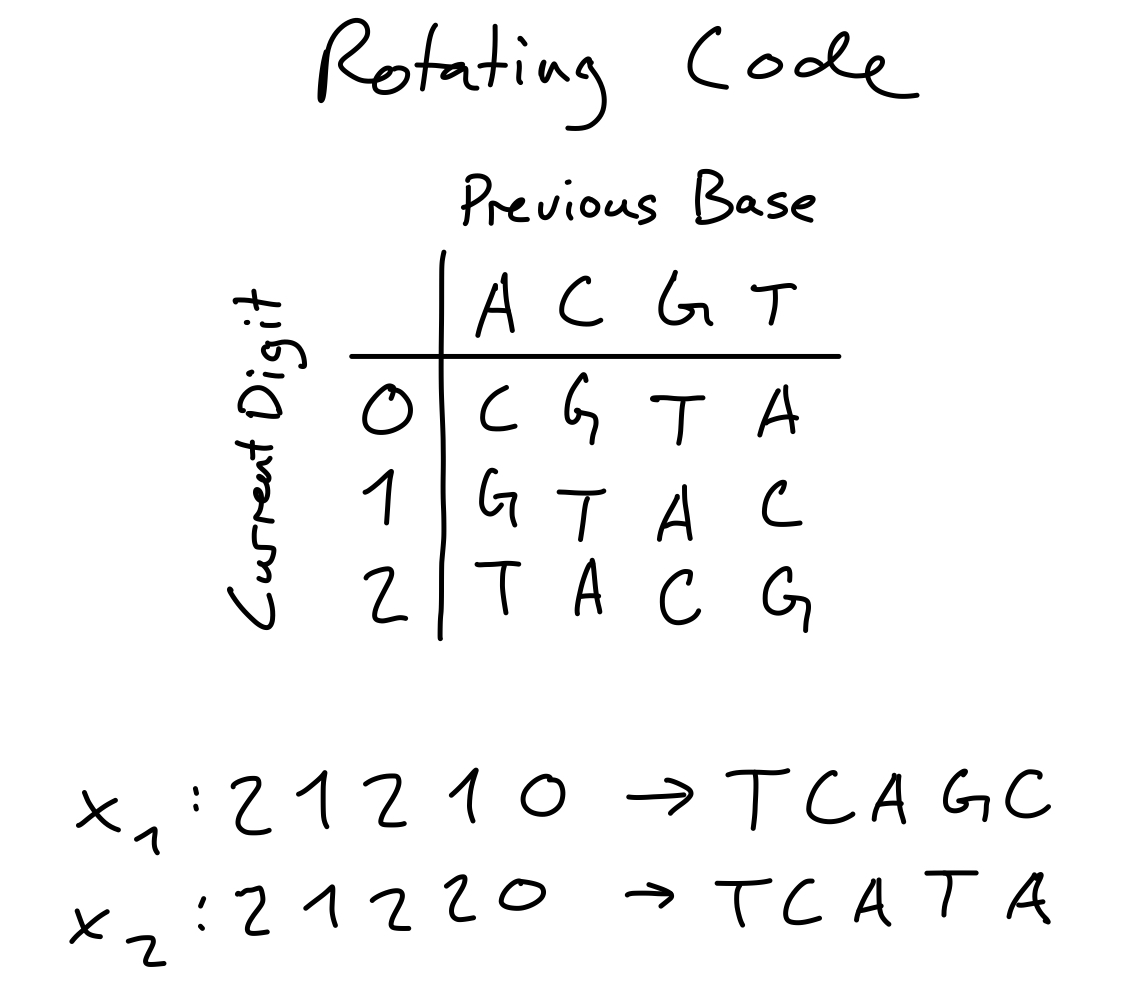 Rotating Code
Previous Base
Current Digit
A C G T
0 C G T A
1 G T A C
2 T A C G
x₁ : 2 1 2 1 0 → T C A G C
x₂ : 2 1 2 2 0 → T C A T A